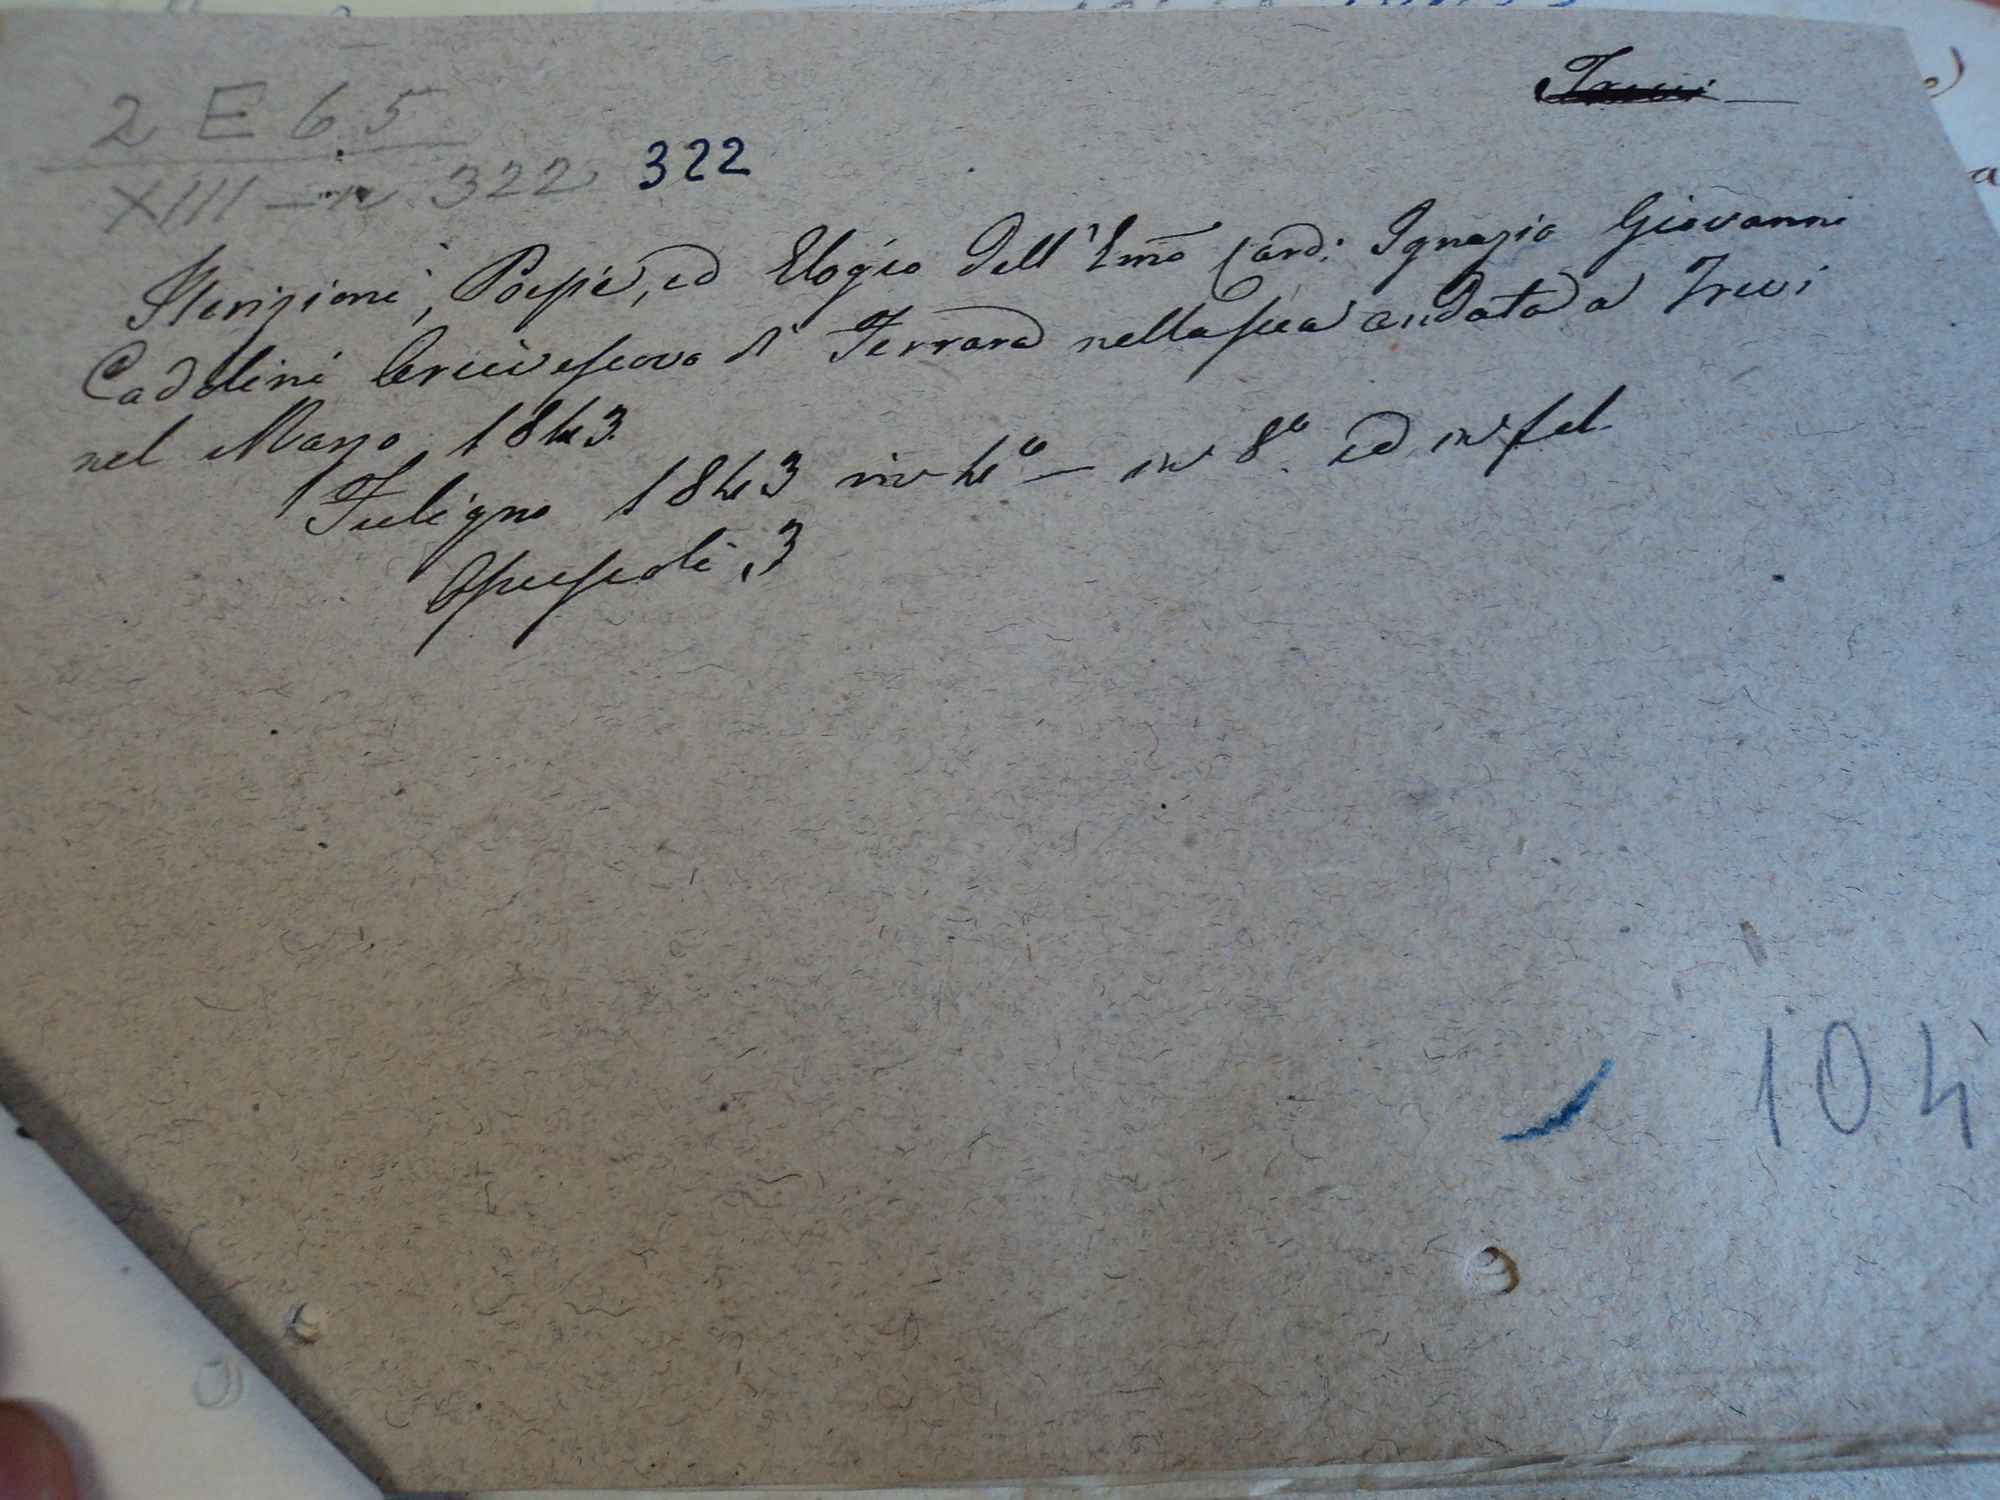 Trevi
2 E 65
XIII - n 322 322
Iscrizioni, Poesie, ed Elogio dell'Emo Card: Ignazio Giovanni
Cadolini Arcivescovo di Ferrara nella sua andata a Trevi
nel Marzo 1843.
Fuligno 1843 in 4º — in 8º. ed in fol.
Opuscoli, 3
104